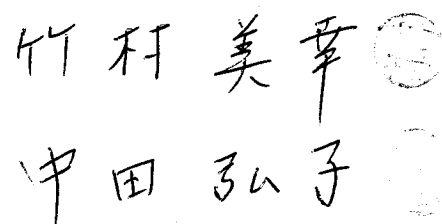 竹村美幸
中田弘子